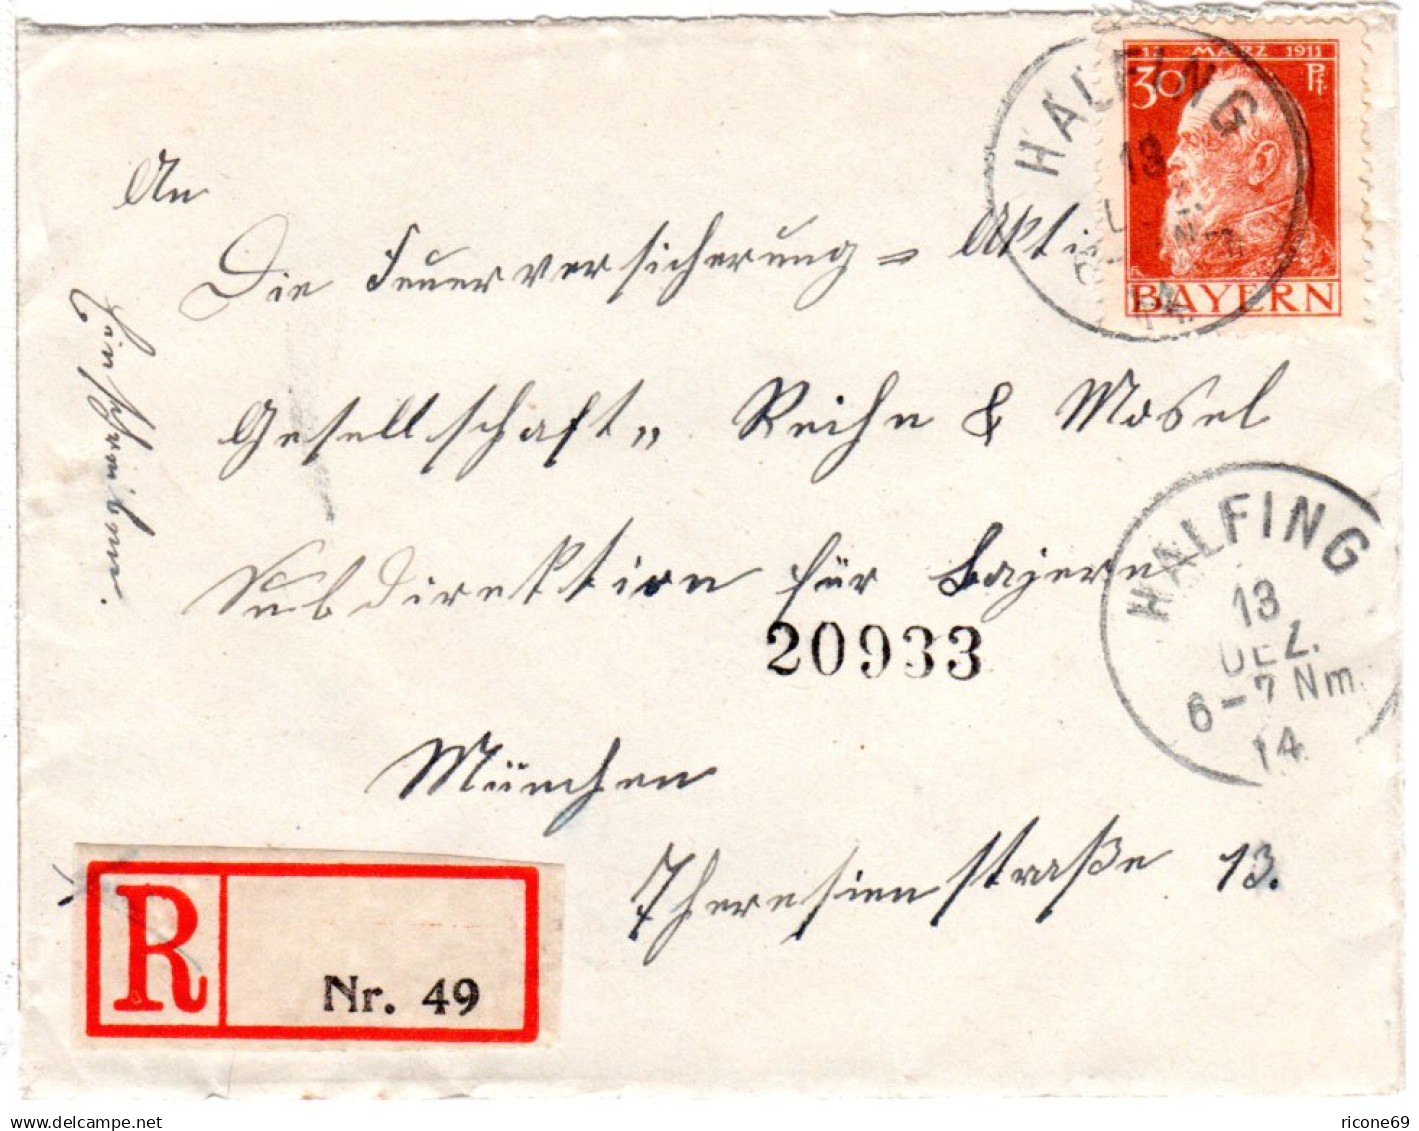 12 MÄRZ 1911
30 Pf.
BAYERN
HALFING
13
An
Die Feuerversicherung = Akti
Gesellschaft „ Reihn & Mosel
Subdirektion für Bayern
20933
München
Theresienstraße 13.
Einschreiben.
HALFING
13
DEZ.
6-7 Nm.
14
R
Nr. 49
delcampe.net
ricone69